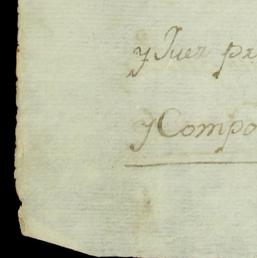 y Juez pr
y Compo